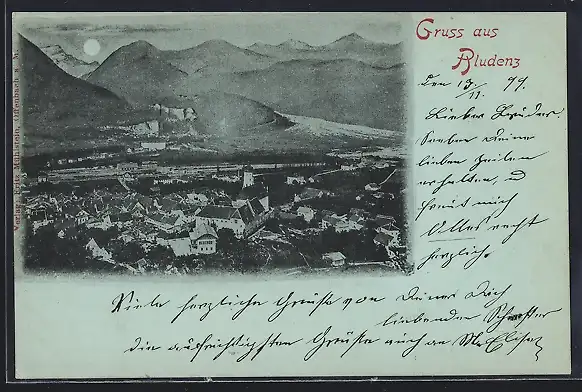 Gruss aus
Bludenz
den 13/11. 99.
Lieber Bruder!
Soeben Deine
lieben Zeilen
erhalten, u
freut mich
Alles recht
herzlich.
Viele herzliche Grüße von Deiner Dich
liebenden Schwester
die aufrichtigsten Grüße auch an
Verlag Fritz Mühlstein, Offenbach a. M.